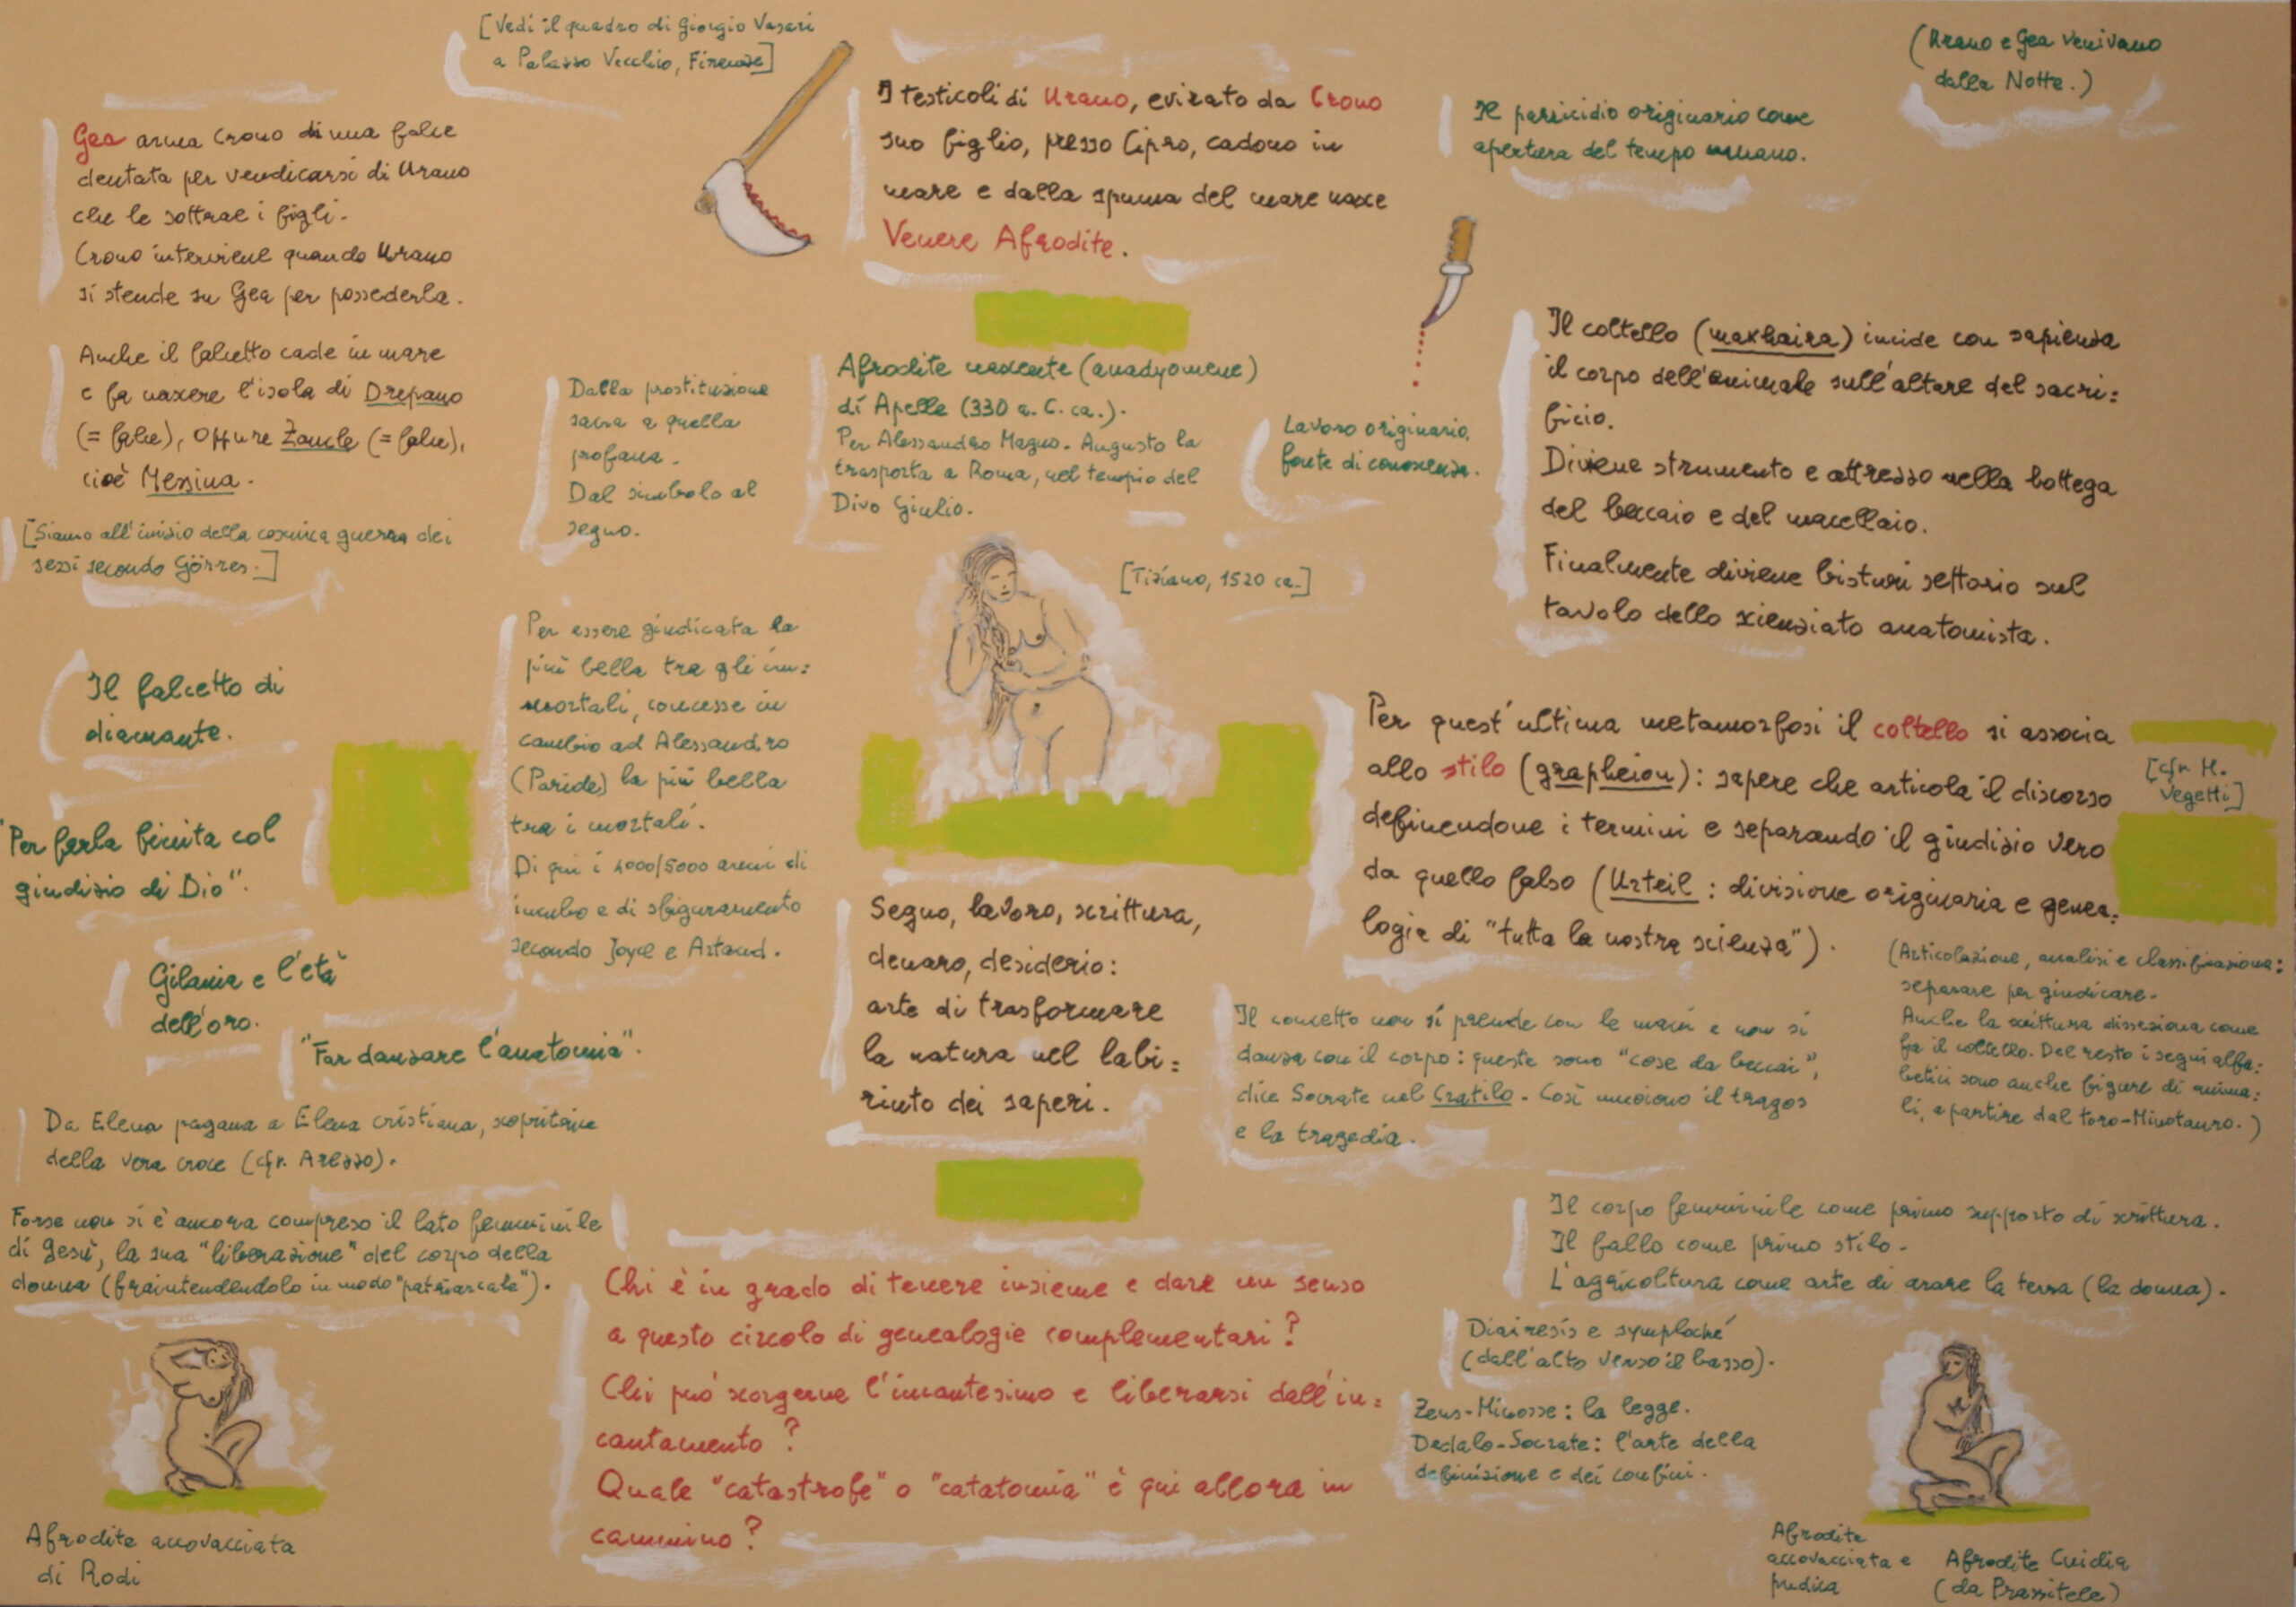 [Vedi il quadro di Giorgio Vasari
a Palazzo Vecchio, Firenze]
Gea arma Crono di una falce
dentata per vendicarsi di Urano
che le sottrae i figli.
Crono interviene quando Urano
si stende su Gea per possederla.
Anche il falcetto cade in mare
e fa nascere l'isola di Drepano
(= falce), oppure Zancle (= falce),
cioè Messina.
[Siamo all'inizio della cosmica guerra dei
sessi secondo Görres.]
Il falcetto di
diamante.
"Per farla finita col
giudizio di Dio".
Gilania e l'età
dell'oro.
"Far danzare l'anatomia".
Da Elena pagana a Elena cristiana, scopritrice
della vera croce (cfr. Arezzo).
Forse non si è ancora compreso il lato femminile
di Gesù, la sua "liberazione" del corpo della
donna (fraintendendolo in modo "patriarcale").
Afrodite accovacciata
di Rodi
Dalla prostituzione
sacra a quella
profana.
Dal simbolo al
segno.
Per essere giudicata la
più bella tra gli im=
mortali, concesse in
cambio ad Alessandro
(Paride) la più bella
tra i mortali.
Di qui i 4000/5000 anni di
incubo e di sfiguramento
secondo Joyce e Artaud.
I testicoli di Urano, evirato da Crono
suo figlio, presso Cipro, cadono in
mare e dalla spuma del mare nasce
Venere Afrodite.
Afrodite nascente (anadyomene)
di Apelle (330 a.C. ca.).
Per Alessandro Magno. Augusto la
trasporta a Roma, nel tempio del
Divo Giulio.
[Tiziano, 1520 ca.]
Segno, lavoro, scrittura,
denaro, desiderio:
arte di trasformare
la natura nel labi=
rinto dei saperi.
Chi è in grado di tenere insieme e dare un senso
a questo circolo di genealogie complementari?
Chi può scorgerne l'incantesimo e liberarsi dall'in=
cantamento?
Quale "catastrofe" o "catatomia" è qui allora in
cammino?
(Urano e Gea venivano
dalla Notte.)
Il parricidio originario come
apertura del tempo umano.
Lavoro originario,
fonte di conoscenza.
Il coltello (makhaira) incide con sapienza
il corpo dell'animale sull'altare del sacri=
ficio.
Diviene strumento e attrezzo nella bottega
del beccaio e del macellaio.
Finalmente diviene bisturi settorio sul
tavolo dello scienziato anatomista.
Per quest'ultima metamorfosi il coltello si associa
allo stilo (grapheion): sapere che articola il discorso
definendone i termini e separando il giudizio vero
da quello falso (Urteil: divisione originaria e genea=
logia di "tutta la nostra scienza").
[cfr. M.
Vegetti]
(Articolazione, analisi e classificazione:
separare per giudicare.
Anche la scrittura disseziona come
fa il coltello. Del resto i segni alfa=
betici sono anche figure di anima=
li, a partire dal toro-Minotauro.)
Il concetto non si prende con le mani e non si
danza con il corpo: queste sono "cose da beccai",
dice Socrate nel Cratilo. Così muoiono il tragos
e la tragedia.
Il corpo femminile come primo supporto di scrittura.
Il fallo come primo stilo.
L'agricoltura come arte di arare la terra (la donna).
Diairesis e symploché
(dall'alto verso il basso).
Zeus-Minosse: la legge.
Dedalo-Socrate: l'arte della
definizione e dei confini.
Afrodite
accovacciata e
pudica
Afrodite Cnidia
(da Prassitele)